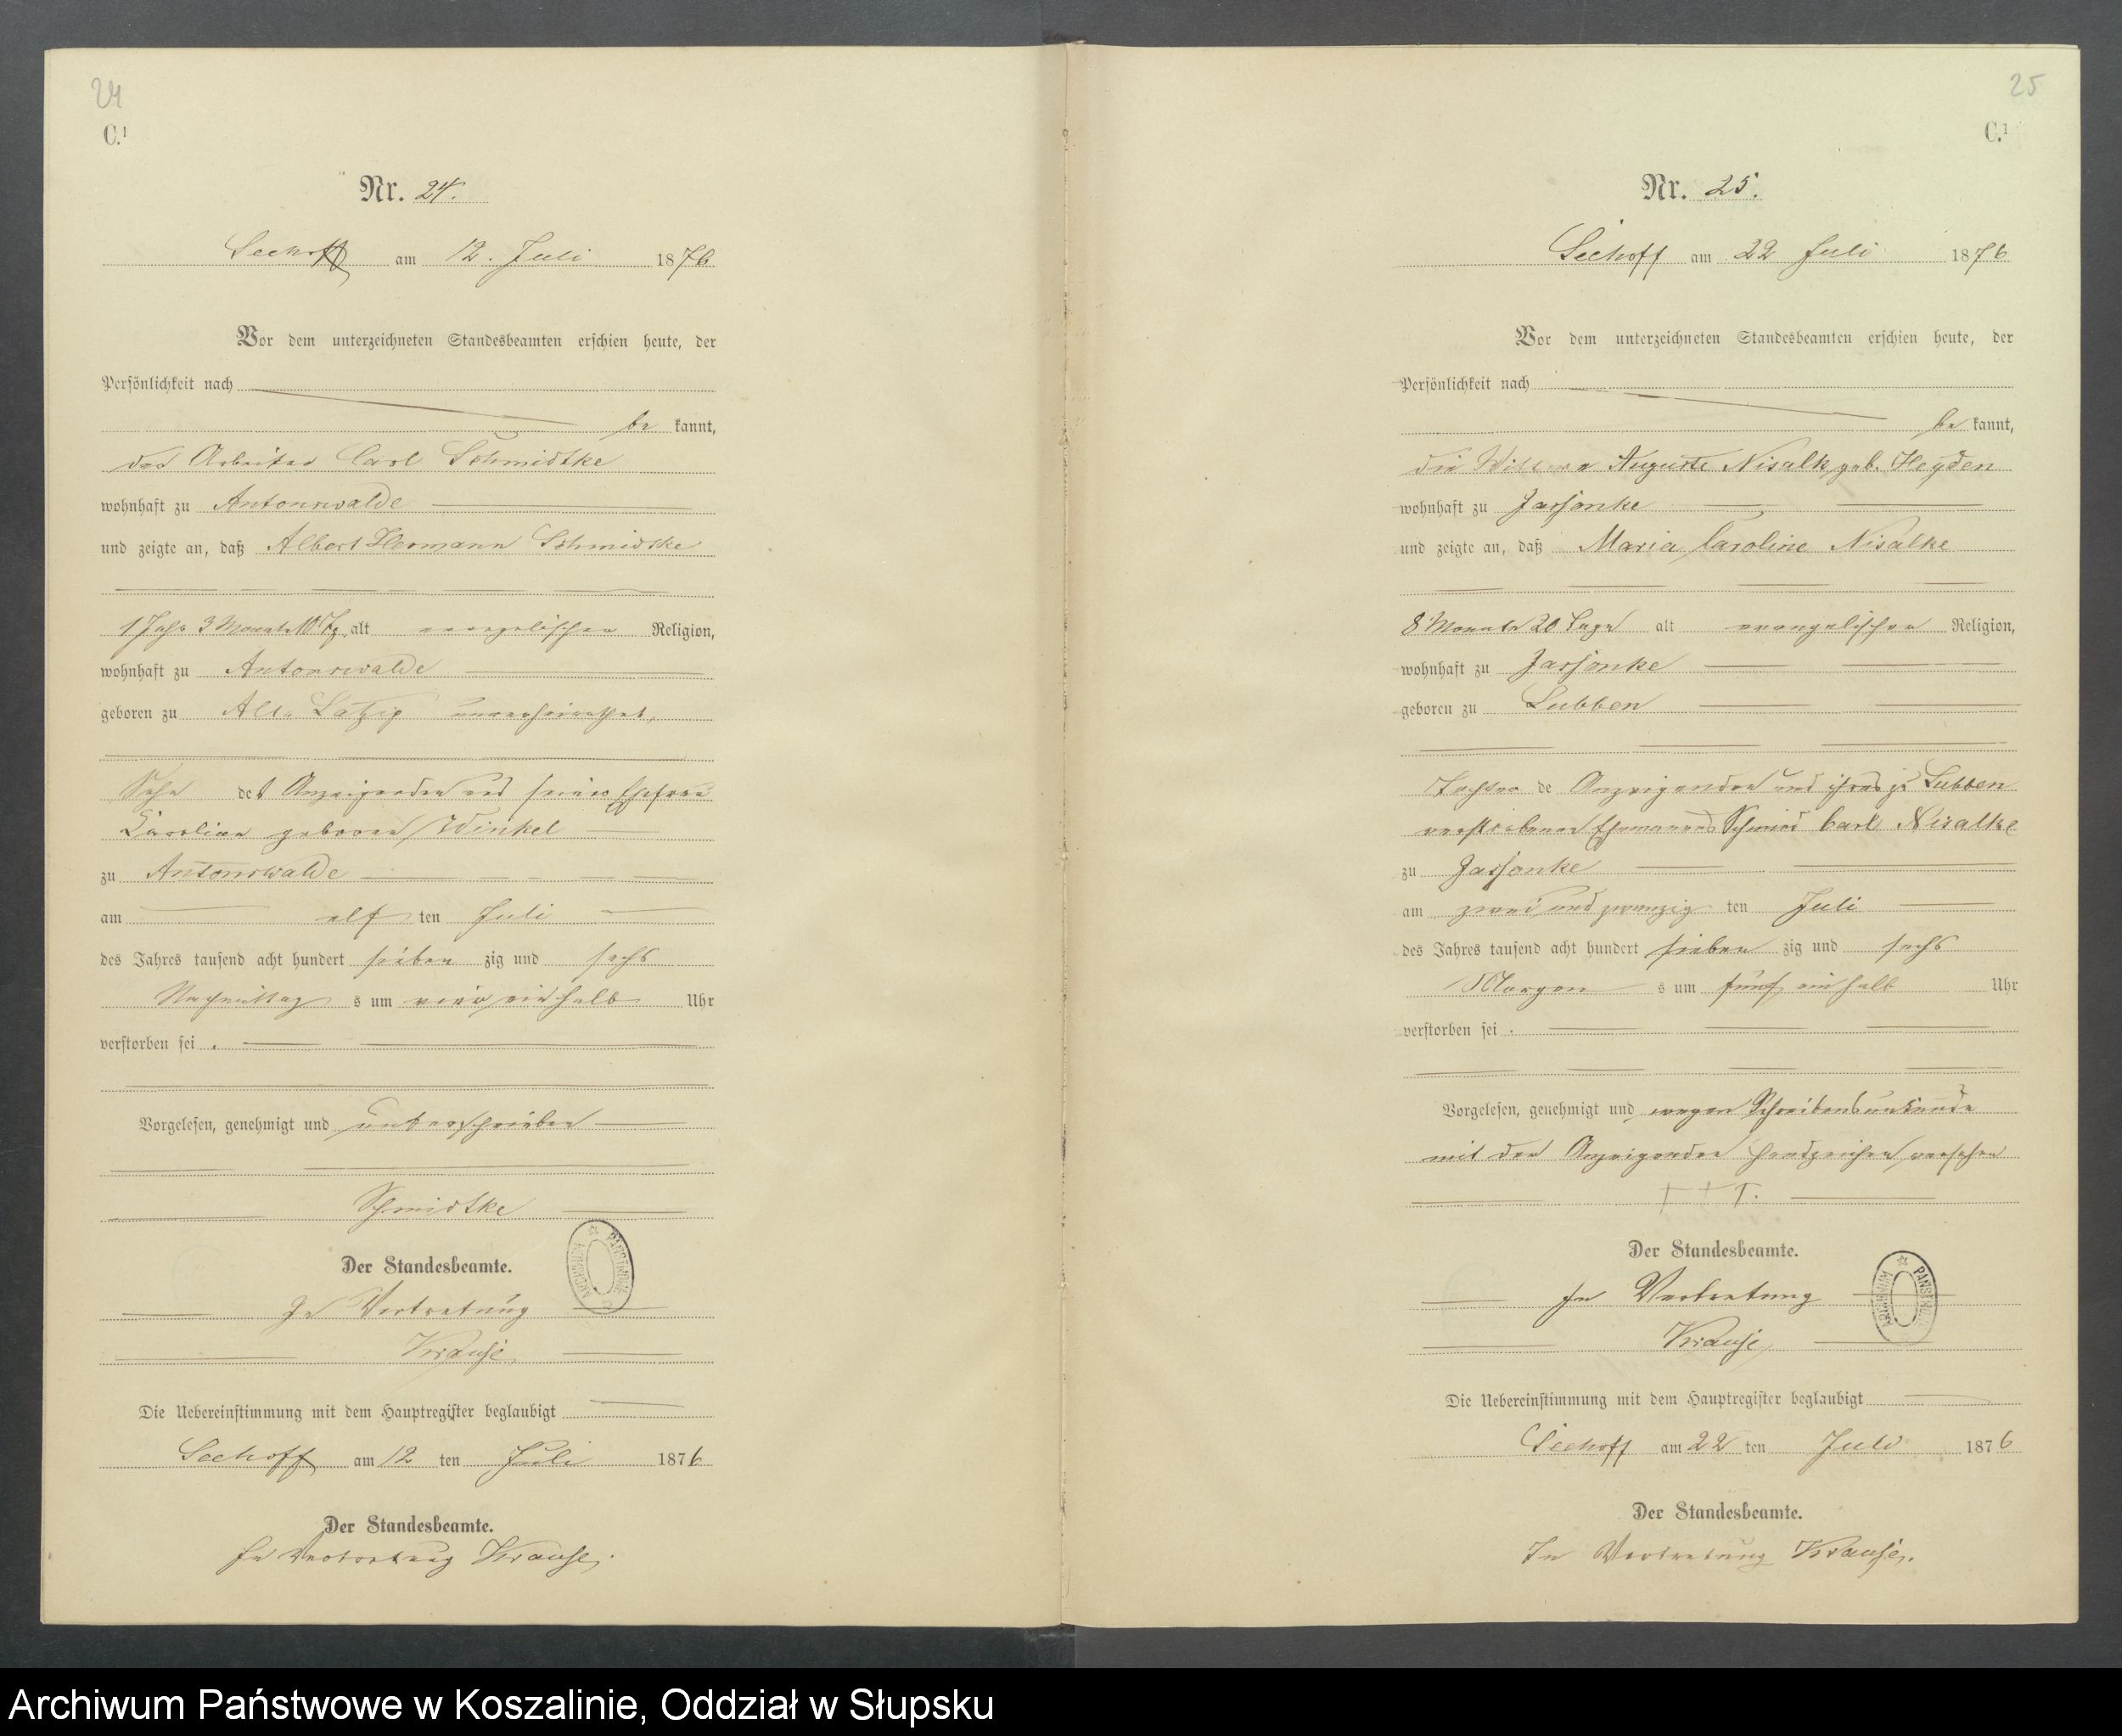 24
C.1
Nr. 24.
Seehoff am 12. Juli 1876
Vor dem unterzeichneten Standesbeamten erschien heute, der
Persönlichkeit nach
be kannt,
der Arbeiter Carl Schmidtke
wohnhaft zu Antonswalde
und zeigte an, daß Albert Hermann Schmidtke
1 Jahr 3 Monate 10 Tg. alt evangelischer Religion,
wohnhaft zu Antonswalde
geboren zu Alt-Latzig unverheirathet,
Sohn des Anzeigenden und seiner Ehefrau
Caroline geboren Winkel
zu Antonswalde
am elf ten Juli
des Jahres tausend acht hundert sieben zig und sechs
Nachmittag s um vier ein halb Uhr
verstorben sei.
Vorgelesen, genehmigt und unterschrieben
Schmidtke
Der Standesbeamte.
In Vertretung
Krause
Die Uebereinstimmung mit dem Hauptregister beglaubigt
Seehoff am 12 ten Juli 1876
Der Standesbeamte.
In Vertretung Krause.
ARCHIWUM PAŃSTWOWE
25
C.1
Nr. 25.
Seehoff am 22 Juli 1876
Vor dem unterzeichneten Standesbeamten erschien heute, der
Persönlichkeit nach
be kannt,
die Wittwe Auguste Nisalk geb. Heyden
wohnhaft zu Jassonke
und zeigte an, daß Maria Caroline Nisalke
8 Monate 20 Tage alt evangelischen Religion,
wohnhaft zu Jassonke
geboren zu Lubben
Tochter de Anzeigenden und ihres zu Lubben
verstorbenen Ehemannes Schmied Carl Nisalke
zu Jassonke
am zwei und zwanzig ten Juli
des Jahres tausend acht hundert sieben zig und sechs
Morgen s um fünf ein halb Uhr
verstorben sei.
Vorgelesen, genehmigt und wegen Schreibensunkunde
mit den Anzeigenden Handzeichen versehen
+ + +.
Der Standesbeamte.
In Vertretung
Krause
ARCHIWUM PAŃSTWOWE
Die Uebereinstimmung mit dem Hauptregister beglaubigt
Seehoff am 22 ten Juli 1876
Der Standesbeamte.
In Vertretung Krause.
Archiwum Państwowe w Koszalinie, Oddział w Słupsku